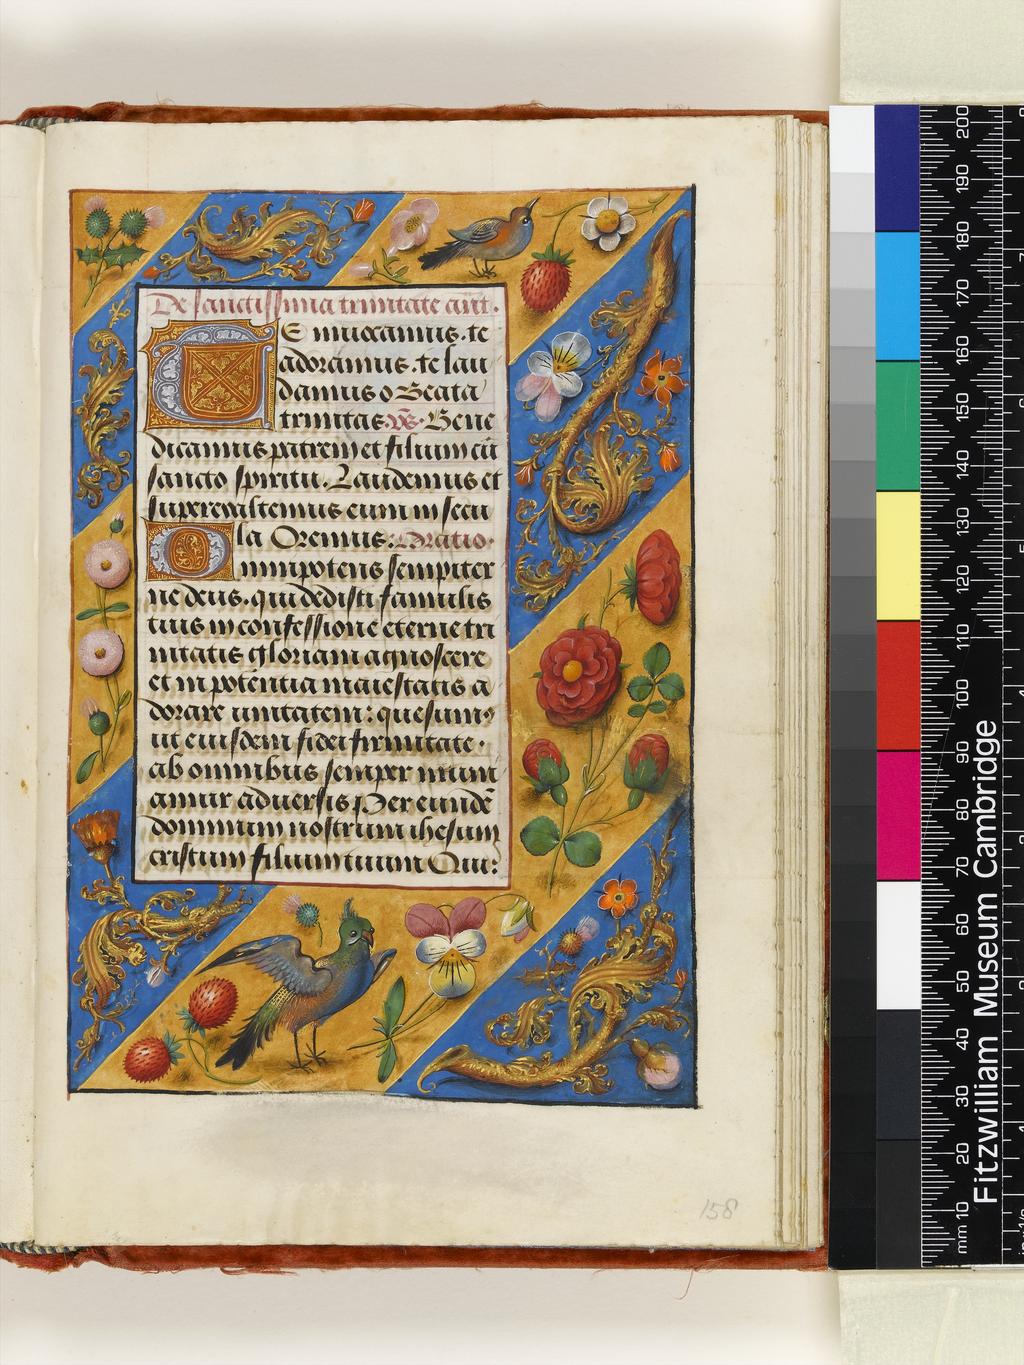 De sanctissima trinitate ant.
TE inuocamus. te
adoramus. te lau
damus o Beata
trinitas. vs. Bene
dicamus patrem et filium cū
sancto spiritu. Laudemus et
superexaltemus eum in secu
la Oremus: Oratio.
Omnipotens sempiter
ne deus. qui dedisti famulis
tuis in confessione eterne tri
nitatis gloriam agnoscere
et in potentia maiestatis a
dorare unitatem: quesumꝰ
ut eiusdem fidei firmitate.
ab omnibus semper muni
amur aduersis. Per eundē
dominum nostrum ihesum
cristum filium tuum Qui:
158
Fitzwilliam Museum Cambridge
mm 10 20 30 40 50 60 70 80 90 100 110 120 130 140 150 160 170 180 190 200